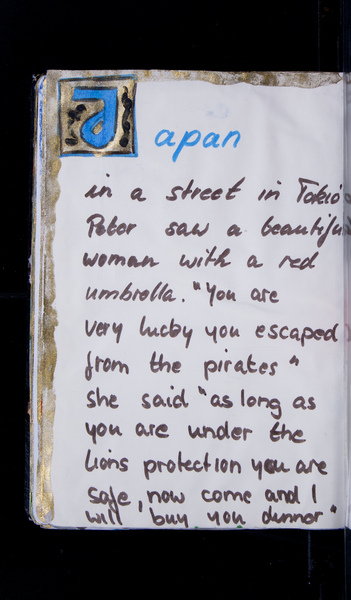 Japan
in a street in Tokio
Peter saw a beautiful
woman with a red
umbrella. "You are
very lucky you escaped
from the pirates"
she said "as long as
you are under the
lions protection you are
safe, now come and I
will buy you dinner"